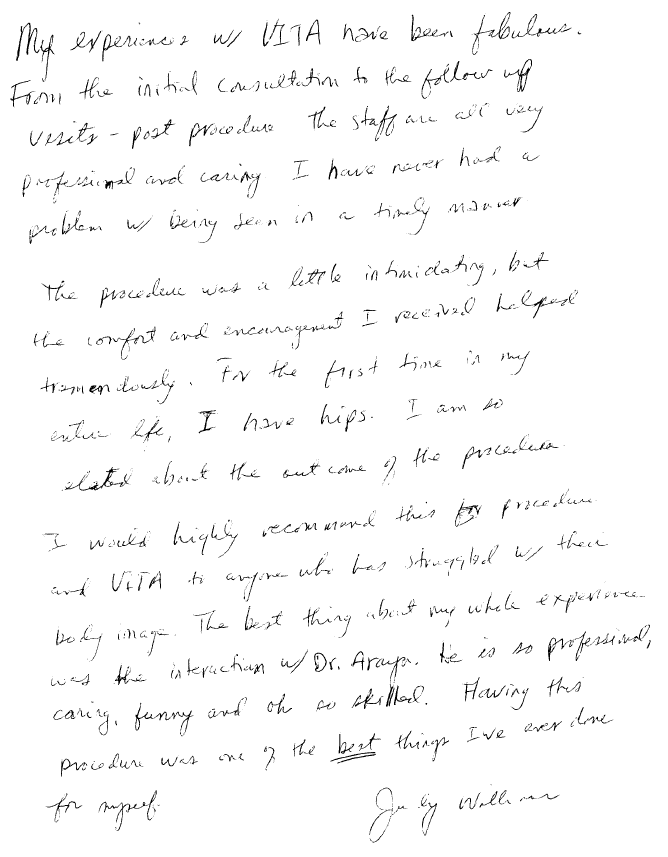 My experiences w/ VITA have been fabulous.
From the initial consultation to the follow up
visits - post procedure the staff are all very
professional and caring I have never had a
problem w/ being seen in a timely manner
The procedure was a little intimidating, but
the comfort and encouragement I received helped
tremendously. For the first time in my
entire life, I have hips. I am so
elated about the outcome of the procedure.
I would highly recommend this procedure
and VITA to anyone who has struggled w/ their
body image. The best thing about my whole experience
was the interaction w/ Dr. Araya. He is so professional,
caring, funny and oh so skilled. Having this
procedure was one of the best things I've ever done
for myself.